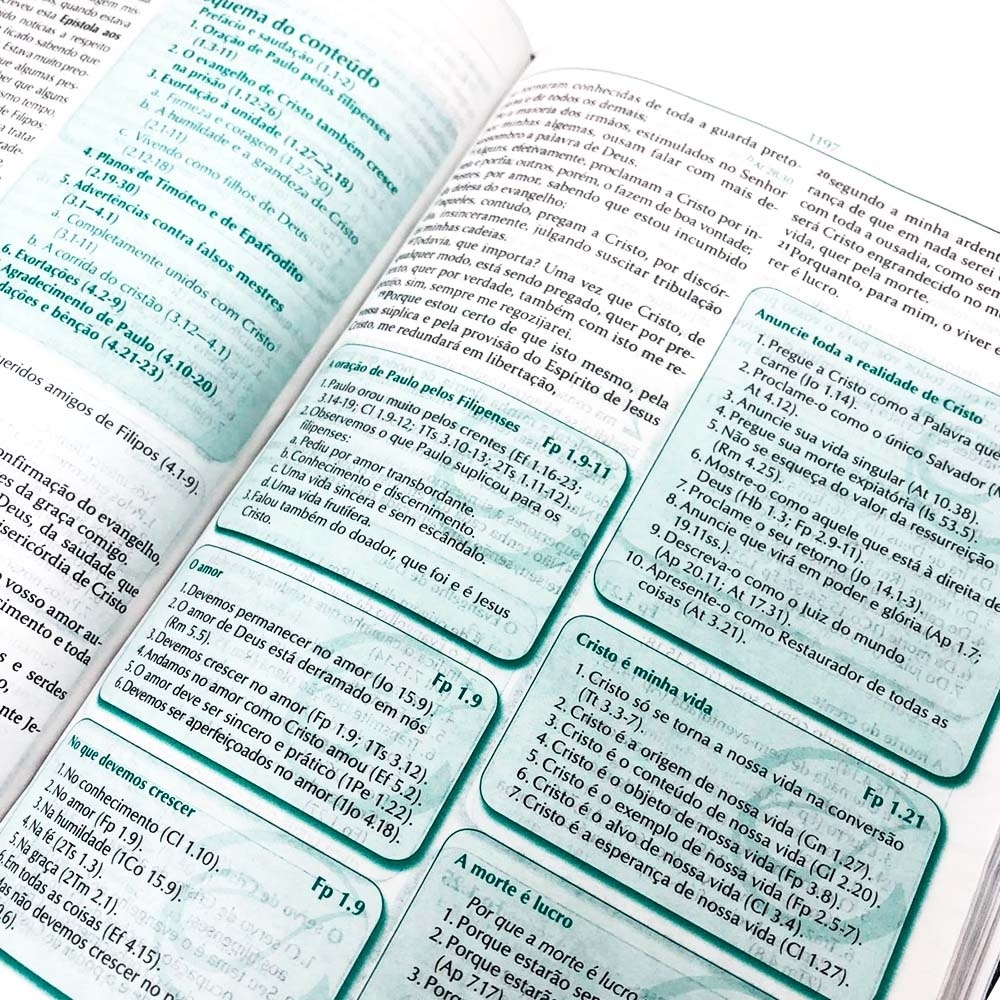 creveu esta Epístola aos
ficado sabendo que
Esquema do conteúdo
Prefácio e saudação (1.1-2)
1. Oração de Paulo pelos filipenses
(1.3-11)
2. O evangelho de Cristo também cresce
na prisão (1.12-26)
3. Exortação à unidade (1.27—2.18)
a. Firmeza e coragem (1.27-30)
b. A humildade e a grandeza de Cristo
(2.1-11)
c. Vivendo como filhos de Deus
(2.12-18)
4. Planos de Timóteo e de Epafrodito
(2.19-30)
5. Advertências contra falsos mestres
(3.1—4.1)
a. Completamente unidos com Cristo
(3.1-11)
b. A corrida do cristão (3.12—4.1)
6. Exortações (4.2-9)
Agradecimento de Paulo (4.10-20)
dações e bênção (4.21-23)
ueridos amigos de Filipos (4.1-9).
onfirmação do evangelho,
es da graça comigo
Deus, da saudade que
isericórdia de Cristo
vosso amor au-
cimento e toda
s e serdes
nte Je-
1197
conhecidas de toda a guarda preto-
e de todos os demais;
a maioria dos irmãos, estimulados no Senhor
minhas algemas, ousam falar com mais de-
assombro a palavra de Deus.
Alguns, efetivamente, proclamam a Cristo por in-
e porfia; outros, porém, o fazem de boa vontade;
estes, por amor, sabendo que estou incumbido
defesa do evangelho;
aqueles, contudo, pregam a Cristo, por discór-
insinceramente, julgando suscitar tribulação
minhas cadeias.
Todavia, que importa? Uma vez que Cristo, de
qualquer modo, está sendo pregado, quer por pre-
texto, quer por verdade, também com isto me re-
gozijo, sim, sempre me regozijarei.
Porque estou certo de que isto mesmo, pela
vossa súplica e pela provisão do Espírito de Jesus
Cristo, me redundará em libertação,
20 segundo a minha ardent
rança de que em nada serei
com toda a ousadia, como sem
será Cristo engrandecido no m
vida, quer pela morte.
21 Porquanto, para mim, o viver é
rer é lucro.
A oração de Paulo pelos Filipenses Fp 1.9-11
1. Paulo orou muito pelos crentes (Ef 1.16-23;
3.14-19; Cl 1.9-12; 1Ts 3.10-13; 2Ts 1.11-12).
2. Observemos o que Paulo suplicou para os
filipenses:
a. Pediu por amor transbordante.
b. Conhecimento e discernimento.
c. Uma vida sincera e sem escândalo.
d. Uma vida frutífera.
3. Falou também do doador, que foi e é Jesus
Cristo.
O amor Fp 1.9
1. Devemos permanecer no amor (Jo 15.9).
2. O amor de Deus está derramado em nós
(Rm 5.5).
3. Devemos crescer no amor (Fp 1.9; 1Ts 3.12).
4. Andamos no amor como Cristo amou (Ef 5.2).
5. O amor deve ser sincero e prático (1Pe 1.22).
6. Devemos ser aperfeiçoados no amor (1Jo 4.18).
No que devemos crescer Fp 1.9
1. No conhecimento (Cl 1.10).
2. No amor (Fp 1.9).
3. Na humildade (1Co 15.9).
4. Na fé (2Ts 1.3).
5. Na graça (2Tm 2.1).
6. Em todas as coisas (Ef 4.15).
Mas não devemos crescer no
Anuncie toda a realidade de Cristo
1. Pregue a Cristo como a Palavra que
Carne (Jo 1.14).
2. Proclame-o como o único Salvador
At 4.12).
3. Anuncie sua vida singular (At 10.38).
4. Pregue sua morte expiatória (Is 53.5).
5. Não se esqueça do valor da ressurreição
(Rm 4.25).
6. Mostre-o como aquele que está à direita de
Deus (Hb 1.3; Fp 2.9-11).
7. Proclame o seu retorno (Jo 14.1-3).
8. Anuncie que virá em poder e glória (Ap 1.7;
19.11ss.).
9. Descreva-o como o Juiz do mundo
(Ap 20.11; At 17.31).
10. Apresente-o como Restaurador de todas as
coisas (At 3.21).
Cristo é minha vida Fp 1.21
1. Cristo só se torna a nossa vida na conversão
(Tt 3.3-7).
2. Cristo é a origem de nossa vida (Gn 1.27).
3. Cristo é o conteúdo de nossa vida (Gl 2.20).
4. Cristo é o objeto de nossa vida (Fp 3.8).
5. Cristo é o exemplo de nossa vida (Fp 2.5-7).
6. Cristo é o alvo de nossa vida (Cl 3.4).
7. Cristo é a esperança de nossa vida (Cl 1.27).
A morte é lucro
Por que a morte é lucro
1. Porque estarão sem
2. Porque estarão
(Ap 7.17).
3. Porq